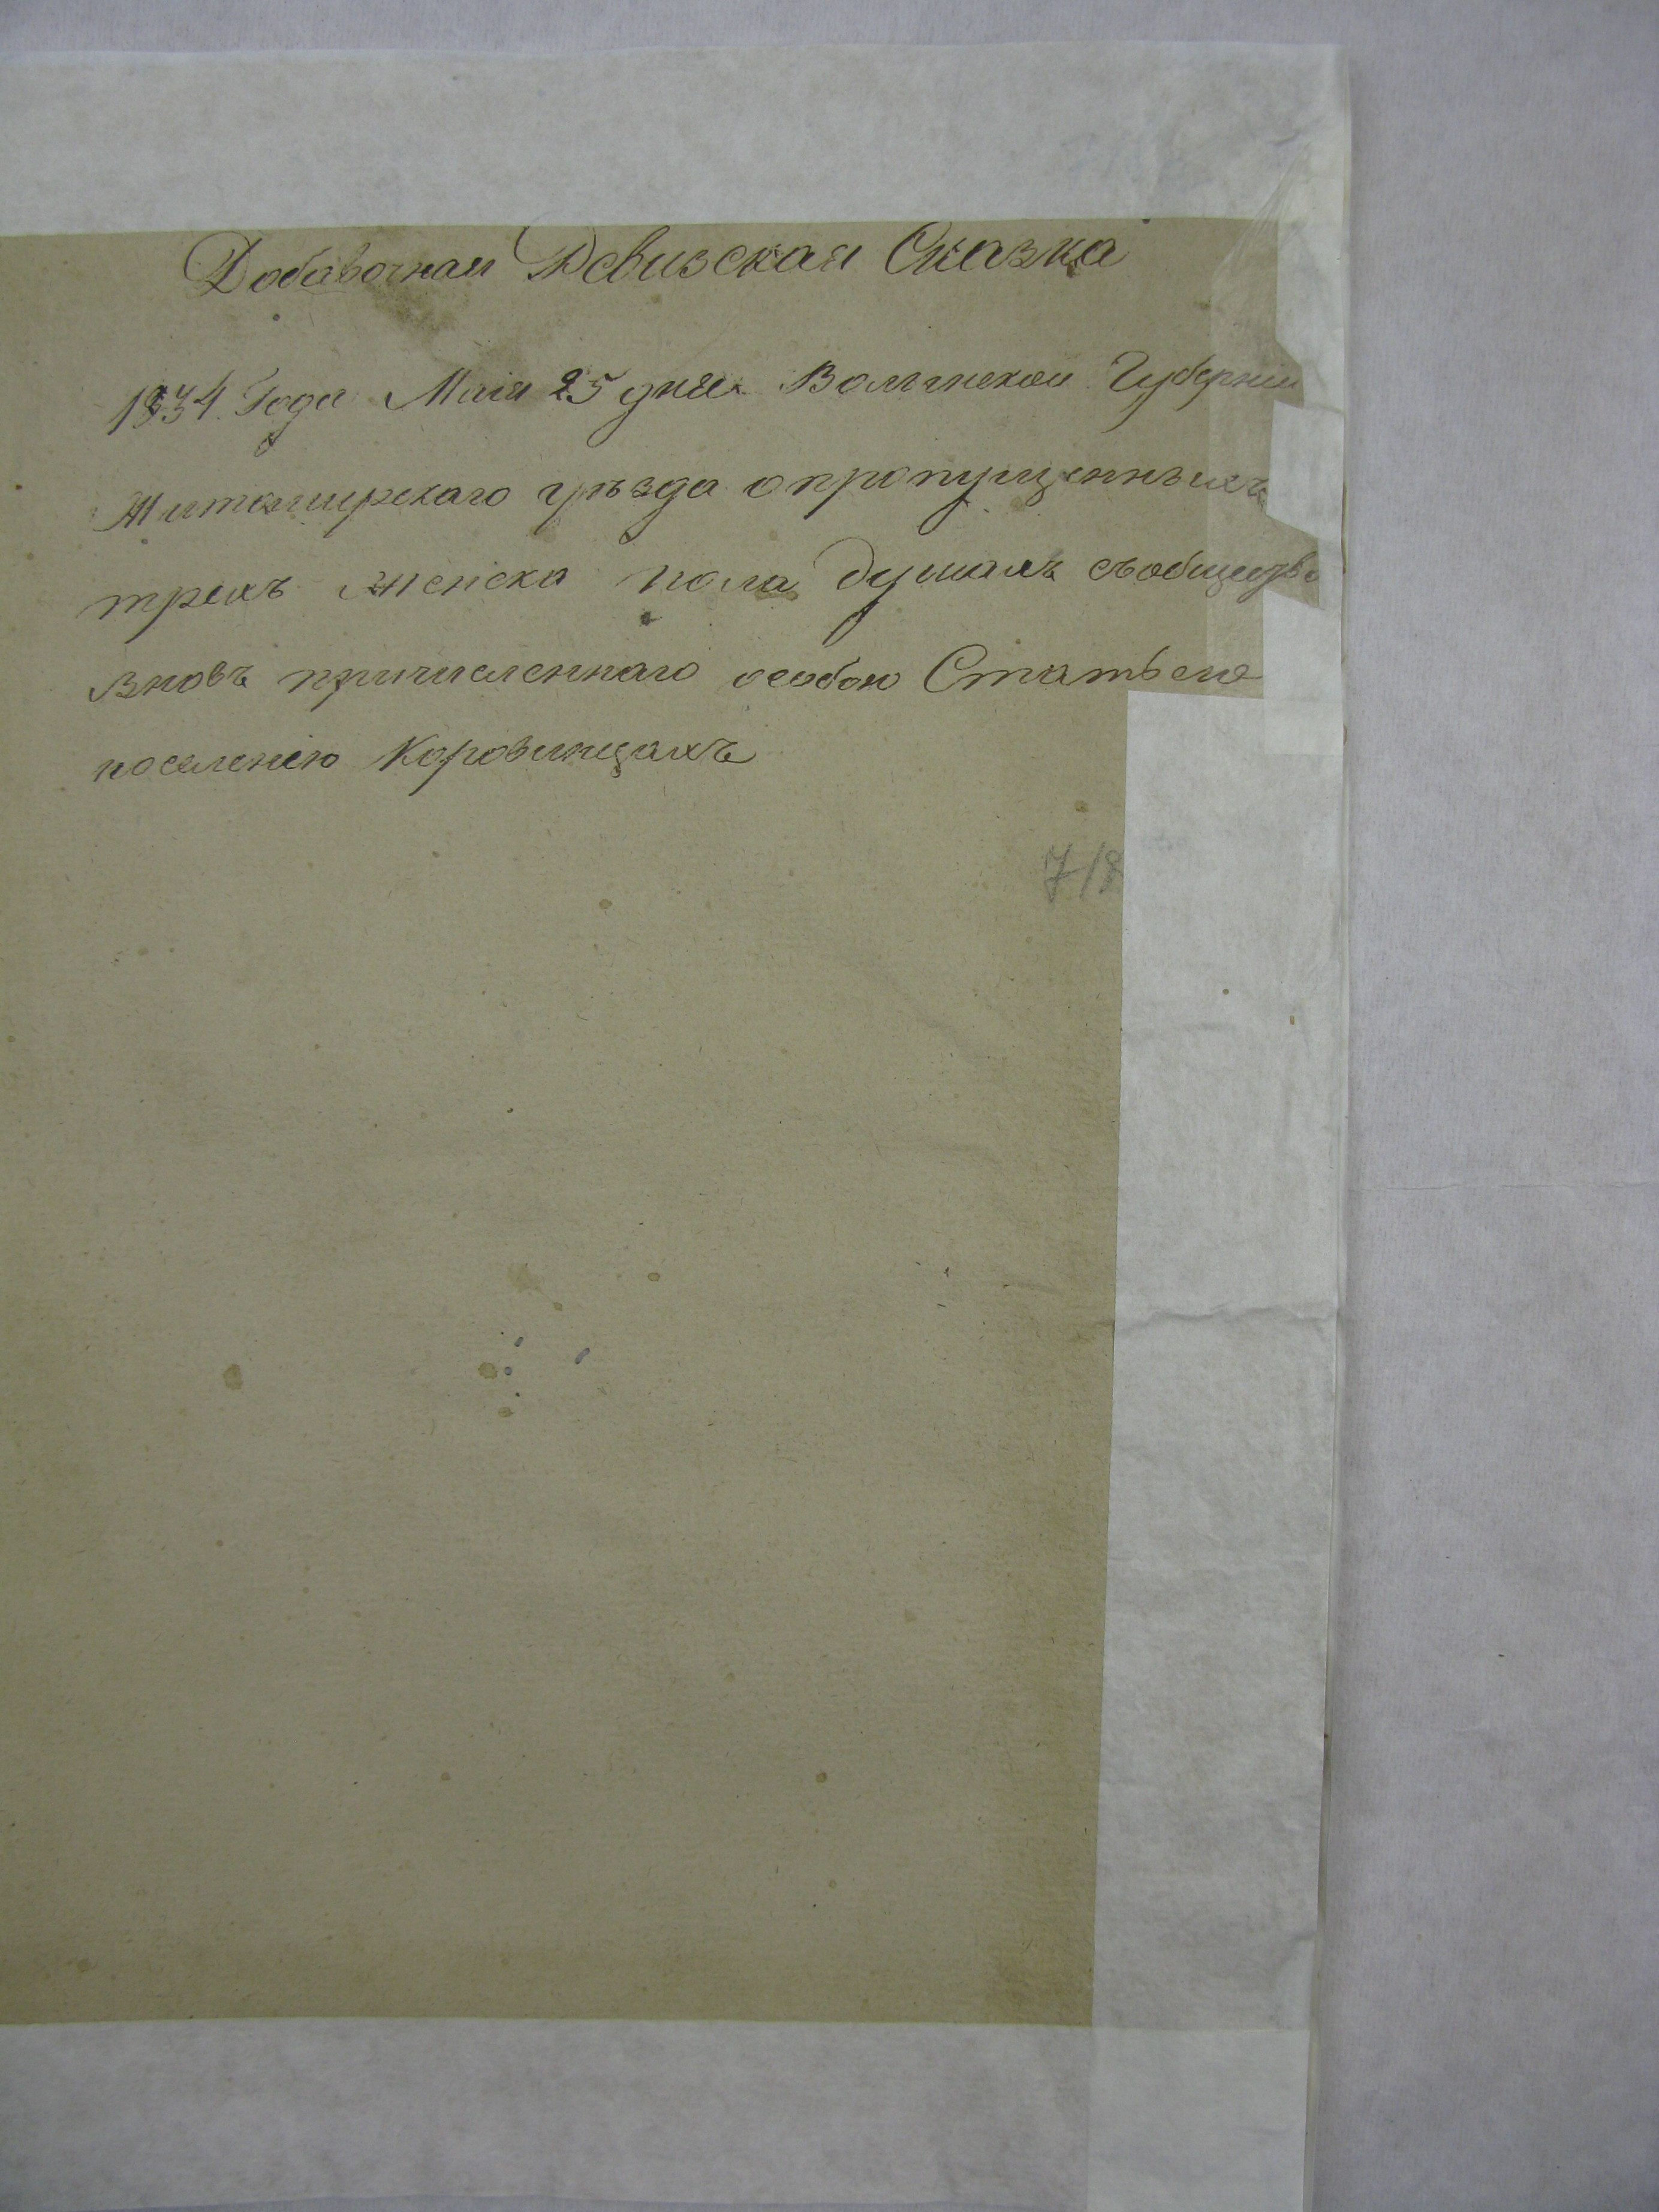 Добавочная Ревизская Сказка
1834 Года Маія 25 дня Волынской Губерніи
Житомирскаго уѣзда о пропущенныхъ
трехъ женска пола душахъ
вновъ причисленнаго особою Статьею
поселенію Коровинцахъ
718